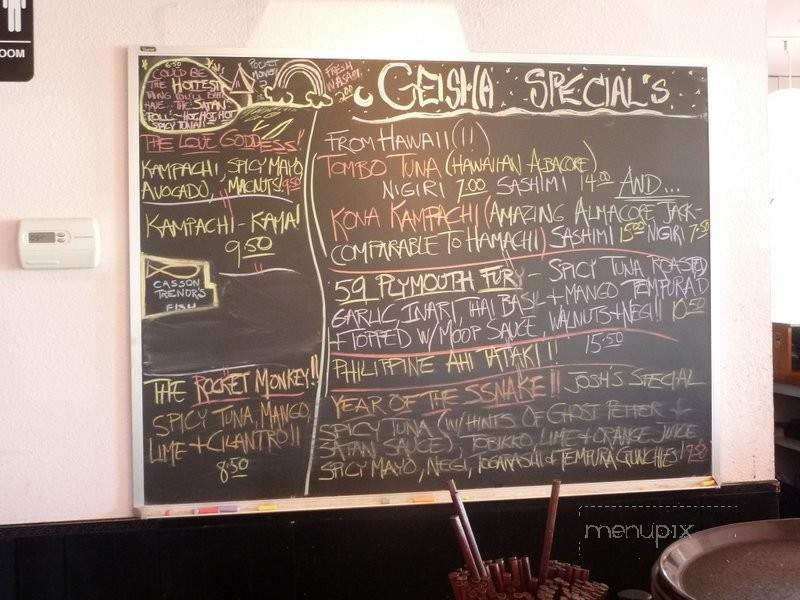 OOM
6.50
COULD BE
THE HOTTEST
THING YOU'LL EVER
HAVE... THE SATAN
ROLL - HOT HOT HOT
SPICY TUNA!!
POCKET
MONKEY
FRESH
WASABI
2.00
THE LOVE GODDESS!!
KAMPACHI, SPICY MAYO
AVOCADO, MACNUTS! 9.50
KAMPACHI-KAMA!
9.50
CASSON
TRENOR'S
FISH
THE ROCKET MONKEY!!
SPICY TUNA, MANGO,
LIME + CILANTRO!!
8.50
GEISHA SPECIAL'S
FROM HAWAII (!!)
TOMBO TUNA (HAWAIIAN ALBACORE)
NIGIRI 7.00 SASHIMI 14.00 AND...
KONA KAMPACHI (AMAZING ALMACORE JACK-
COMPARABLE TO HAMACHI) SASHIMI 15.00 NIGIRI 7.50
59 PLYMOUTH FURY - SPICY TUNA ROASTED
GARLIC, INARI, THAI BASIL + MANGO TEMPURA'D
+ TOPPED W/ MOOP SAUCE, WALNUTS + NEGI! 10.50
PHILIPPINE AHI TATAKI!! 15.50
YEAR OF THE SSNAKE!! JOSH'S SPECIAL
SPICY TUNA (W/ HINTS OF GHOST PEPPER +
SATAN SAUCE), TOBIKKO, LIME + ORANGE JUICE
SPICY MAYO, NEGI, TOGARASHI + TEMPURA CRUNCHIES
menupix